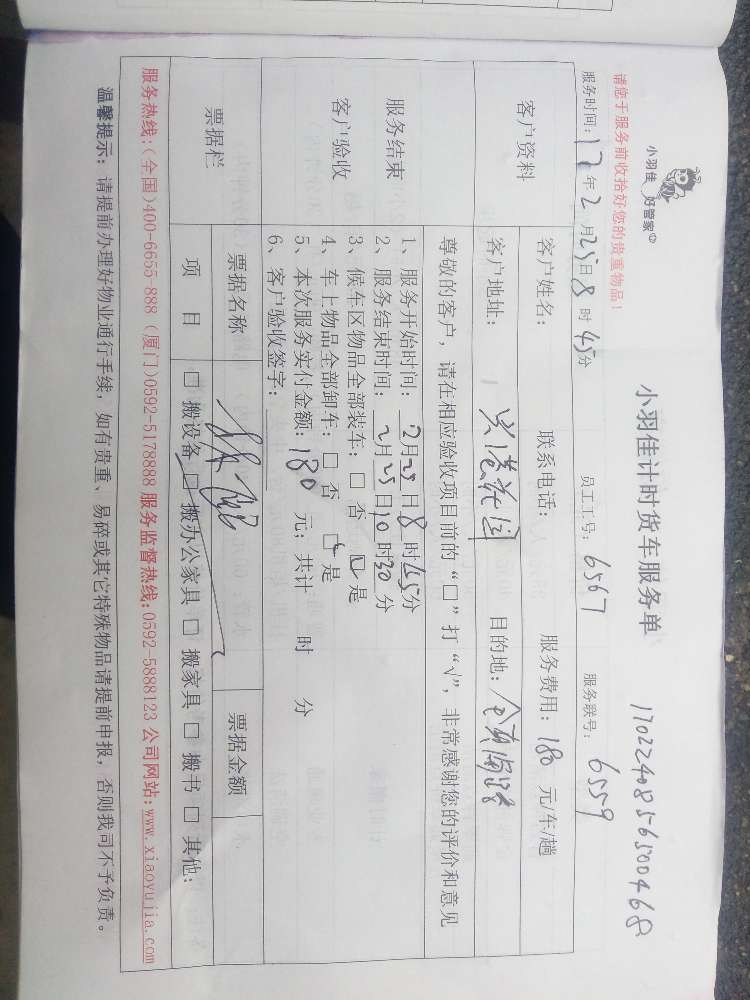 小羽佳 好管家
小羽佳计时货车服务单
17022408565500468
请您于服务前收拾好您的贵重物品！
服务时间：17年2月25日8时45分 员工工号：6567 服务联号：6559
客户资料
客户姓名： 联系电话： 服务费用：180元/车/趟
客户地址： 目的地：
尊敬的客户，请在相应验收项目前的“□”打“√”，非常感谢您的评价和意见
服务结束
客户验收
1、服务开始时间：2月25日8时45分
2、服务结束时间：2月25日10时30分
3、候车区物品全部装车：□ 否 ☑ 是
4、车上物品全部卸车：□ 否 ☑ 是
5、本次服务实付金额：180元；共计 时 分
6、客户验收签字：
票据栏
票据名称 票据金额
项 目 □ 搬设备 □ 搬办公家具 □ 搬家具 □ 搬书 □ 其他：
服务热线：（全国）400-6655-888（厦门）0592-5178888 服务监督热线：0592-5888123 公司网站：www.xiaoyujia.com
温馨提示：请提前办理好物业通行手续，如有贵重、易碎或其它特殊物品请提前申报，否则我司不予负责。